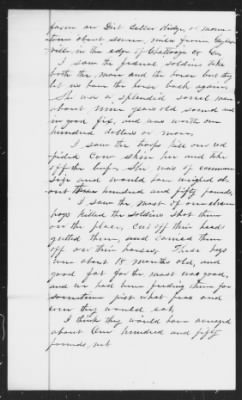 farm on Dirt Cellar Ridge, a
about seven miles from
ville, in the edge of Chattooga Co Ga
I saw the federal soldiers take
both the mare and the horse but they
let us have the horse back again.
She was a splendid sorrel mare
about nine years old sound and
in good fix, and was worth one
hundred dollars or more.
I saw the troops kill our red
pided cow skin her and take
off the beef. She was of common
size and would have weighed ab-
out three hundred and fifty pounds.
I saw the most of our eleven
hogs killed the soldiers shot them
on the place, cut off their heads
gutted them, and carried them
off on their horses. These hogs
were about 18 months old, and
good fat for the mast was good,
and we had been feeding them for
sometime just what peas and
corn they would eat.
I think they would have averaged
about One hundred and fifty
pounds net